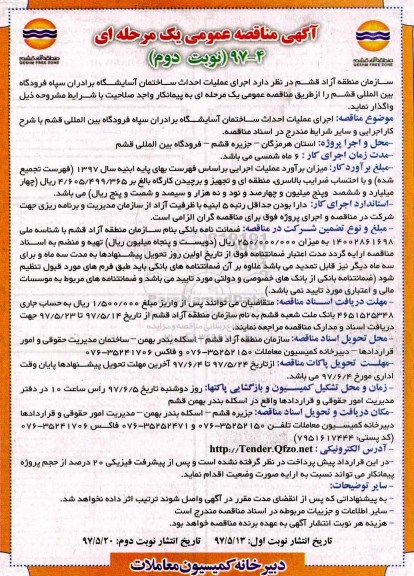 آگهی مناقصه عمومی یک مرحله ای
۹۷-۴ (نوبت دوم)
منطقه آزاد قشم
QESHM FREE ZONE
منطقه آزاد قشم
QESHM FREE ZONE
سازمان منطقه آزاد قشم در نظر دارد اجرای عملیات احداث ساختمان آسایشگاه برادران سپاه فرودگاه
بین المللی قشم را ازطریق مناقصه عمومی یک مرحله ای به پیمانکار واجد صلاحیت با شرایط مشروحه ذیل
واگذار نماید.
موضوع مناقصه: اجرای عملیات احداث ساختمان آسایشگاه برادران سپاه فرودگاه بین المللی قشم با شرح
کاراجرایی و سایر شرایط مندرج در اسناد مناقصه.
-محل و اجرا پروژه: استان هرمزگان – جزیره قشم – فرودگاه بین المللی قشم
-مدت زمان اجرای کار : ۶ ماه شمسی می باشد.
-مبلغ برآورد کار: میزان برآورد عملیات اجرایی براساس فهرست بهای پایه ابنیه سال ۱۳۹۷ (فهرست تجمیع
شده) و با احتساب ضرایب بالاسری، منطقه ای و تجهیز و برچیدن کارگاه بالغ بر ۴/۶۰۵/۴۹۹/۳۶۵ ریال (چهار
میلیارد و ششصد وپنج میلیون و چهارصد و نود و نه هزار و سیصد و شصت و پنج ریال) می باشد.
-استاندارد اجرای کار: دارا بودن حداقل رتبه ۵ ابنیه با ظرفیت آزاد از سازمان مدیریت و برنامه ریزی جهت
شرکت در مناقصه و اجرای پروژه فوق برای مناقصه گران الزامی است.
- مبلغ و نوع تضمین شرکت در مناقصه: ضمانت نامه بانکی بنام سازمان منطقه آزاد قشم با شناسه ملی
۱۴۰۰۲۸۶۱۶۹۸ به میزان ۲۵۰/۰۰۰/۰۰۰ ریال (دویست و پنجاه میلیون ریال) تهیه و منضم به اسناد
مناقصه ارایه گردد مدت اعتبار ضمانتنامه فوق از تاریخ اولین روز تحویل پیشنهادها به مدت سه ماه و برای
سه ماه دیگر نیز قابل تمدید می باشد علاوه بر آن ضمانتنامه های بانکی باید طبق فرم های مورد قبول تنظیم
شود (ضمانتنامه بانکی از بانک های خصوصی و دولتی مورد تایید می باشد و ضمانتنامه های مربوط به موسسات
مالی و اعتباری مورد تایید نمی باشد.)
- مهلت دریافت اسناد مناقصه: متقاضیان می توانند پس از واریز مبلغ ۱/۵۰۰/۰۰۰ ریال به حساب جاری
۴۶۵۱۵۲۵۳۴۸ بانک ملت شعبه قشم به نام سازمان منطقه آزاد قشم از تاریخ ۹۷/۵/۱۴ تا تاریخ ۹۷/۵/۲۳ جهت
دریافت اسناد و مدارک مناقصه مراجعه نمایند.
- محل تحویل اسناد مناقصه: سازمان منطقه آزاد قشم – اسکله بندر بهمن – ساختمان مدیریت حقوقی و امور
قراردادها – دبیرخانه کمیسیون معاملات ۳۵۲۵۲۱۵۰-۰۷۶ و فاکس ۳۵۲۴۱۷۰۶-۰۷۶
-مهلت تحویل پاکات مناقصه: ازتاریخ ۹۷/۵/۲۴ تا ۹۷/۶/۴ آخرین مهلت تحویل پیشنهادها پایان وقت
اداری مورخ ۹۷/۶/۴ می باشد.
- زمان و محل تشکیل کمیسیون و بازگشایی پاکتها: روز دوشنبه تاریخ ۹۷/۶/۵ راس ساعت ۱۰ در دفتر
مدیریت امور حقوقی و قراردادها واقع در اسکله بندر بهمن قشم
-مکان دریافت و تحویل اسناد مناقصه: جزیره قشم – اسکله بندر بهمن – مدیریت امور حقوقی و قراردادها
دبیرخانه کمیسیون معاملات تلفــن ۳۵۲۵۲۱۵۰-۰۷۶ و ۳۵۲۵۲۴۷۱-۰۷۶ فاکس ۳۵۲۴۱۷۰۶-۰۷۶
(کد پستی: ۷۹۵۱۶۱۷۴۴۴)
- آدرس الکترونیکی : http://Tender.Qfzo.net
-در این قرارداد پیش پرداخت در نظر گرفته نشده است و پس از پیشرفت فیزیکی ۲۰ درصد از حجم پروژه
پیمانکار می تواند نسبت به ارایه صورت وضعیت اقدام نماید.
- سایر توضیحات:
- به پیشنهاداتی که پس از انقضای مدت مقرر در آگهی واصل شوند ترتیب اثر داده نخواهد شد.
- سایر اطلاعات و جزییات مربوطه در اسناد مناقصه مندرج است
- هزینه هر نوبت انتشار آگهی به عهده برنده مناقصه خواهد بود.
تاریخ انتشار نوبت اول: ۹۷/۵/۱۳ تاریخ انتشار نوبت دوم: ۹۷/۵/۲۰
دبیرخانه کمیسیون معاملات